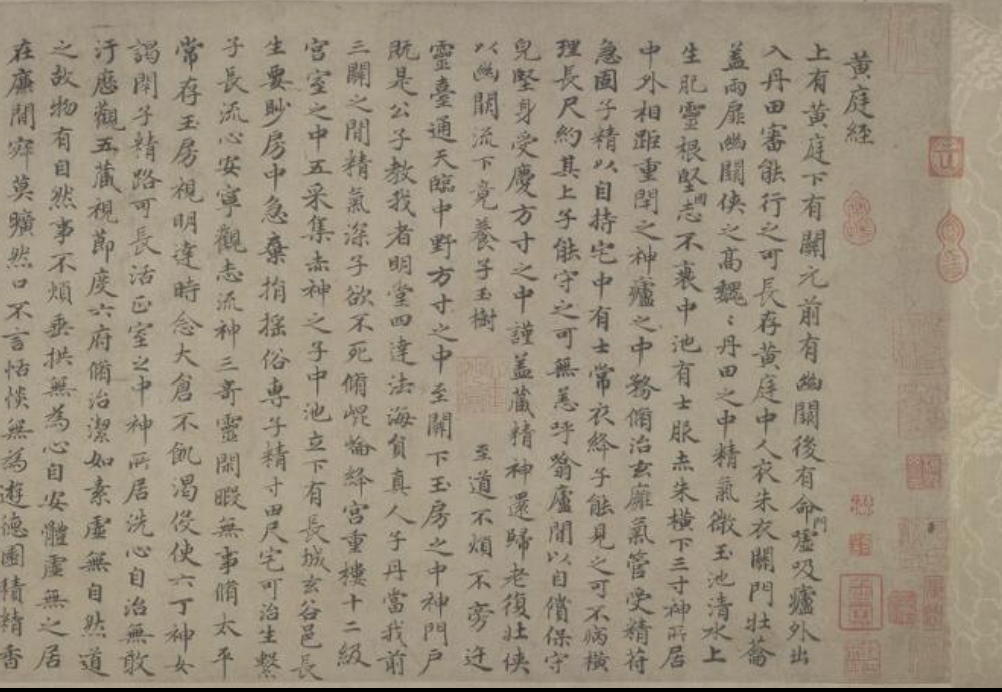 黃庭經
上有黃庭下有關元前有幽關後有命門噓吸廬外出
入丹田審能行之可長存黃庭中人衣朱衣關門壯籥
蓋兩扉幽關俠之高魏〻丹田之中精氣微玉池清水上
生肥靈根堅固志不衰中池有士服赤朱橫下三寸神所居
中外相距重閉之神廬之中務脩治玄㢃氣管受精苻
急固子精以自持宅中有士常衣絳子能見之可不病橫
理長尺約其上子能守之可無恙呼翕廬間以自償保守
皃堅身受慶方寸之中謹蓋藏精神還歸老復壯俠
以幽關流下竟養子玉樹 至道不煩不旁迕
靈臺通天臨中野方寸之中至關下玉房之中神門戶
既是公子教我者明堂四達法海員真人子丹當我前
三關之間精氣深子欲不死脩崐崘絳宮重樓十二級
宮室之中五采集赤神之子中池立下有長城玄谷邑長
生要眇房中急棄捐搖俗專子精寸田尺宅可治生繫
子長流心安寧觀志流神三奇靈閑暇無事脩太平
常存玉房視明達時念大倉不飢渴役使六丁神女
謁閉子精路可長活正室之中神所居洗心自治無敢
汙歷觀五藏視節度六府脩治潔如素虛無自然道
之故物有自然事不煩垂拱無為心自安體虛無之居
在廉間寂莫曠然口不言恬惔無為遊德園積精香